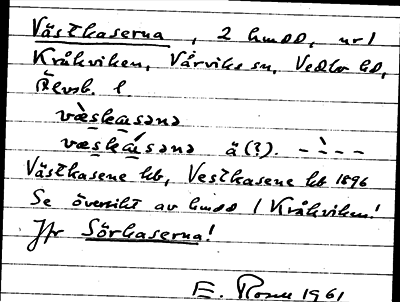 Västkaserna, 2 hmdd, ur l
Kråkviken, Vårviks sn, Vedbo hd,
Älvsb. l.
væ̀skasənə
væskásənə ä(?). -̀---
Västkasene hb, Vestkasene kb 1896
Se översikt av hmdd / Kråkviken!
Jfr Sörkaserna!
E. Rosell 1961